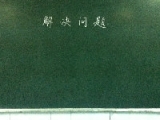 解决问题